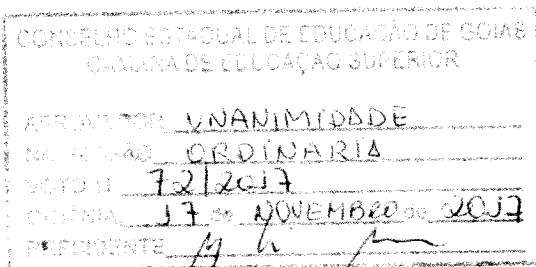 CONSELHO ESTADUAL DE EDUCAÇÃO DE GOIÁS
CÂMARA DE EDUCAÇÃO SUPERIOR
POR UNANIMIDADE
NA SESSÃO ORDINARIA
VOTO N 72/2017
GOIÂNIA, 17 de NOVEMBRO de 2017
PRESIDENTE